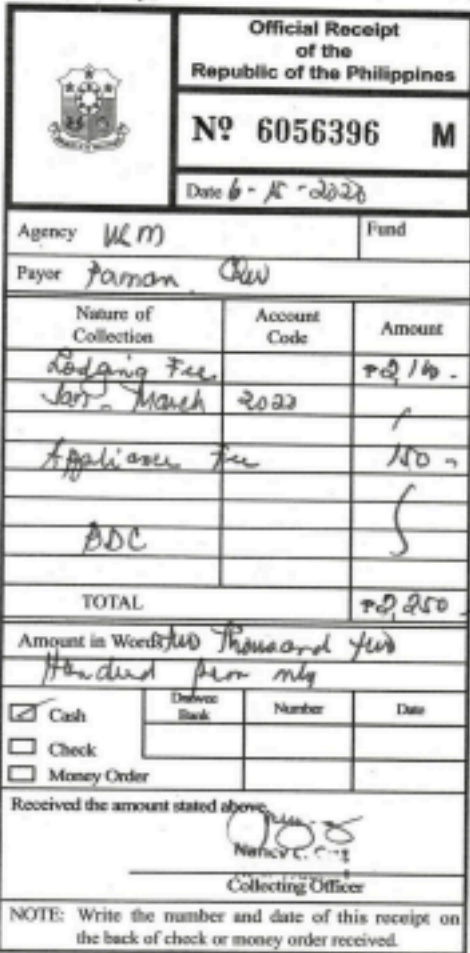 Official Receipt
of the
Republic of the Philippines
Nº 6056396 M
Date 6-15-2022
Agency
Fund
Payor Paman,
Nature of Collection
Account Code
Amount
Lodging Fee
Jan - March 2022
Appliance Fee 150 -
BDC
TOTAL ₱2,250.
Amount in Words two Thousand two
Hundred only
Cash
Drawee Bank
Number
Date
Check
Money Order
Received the amount stated above.
Collecting Officer
NOTE: Write the number and date of this receipt on
the back of check or money order received.